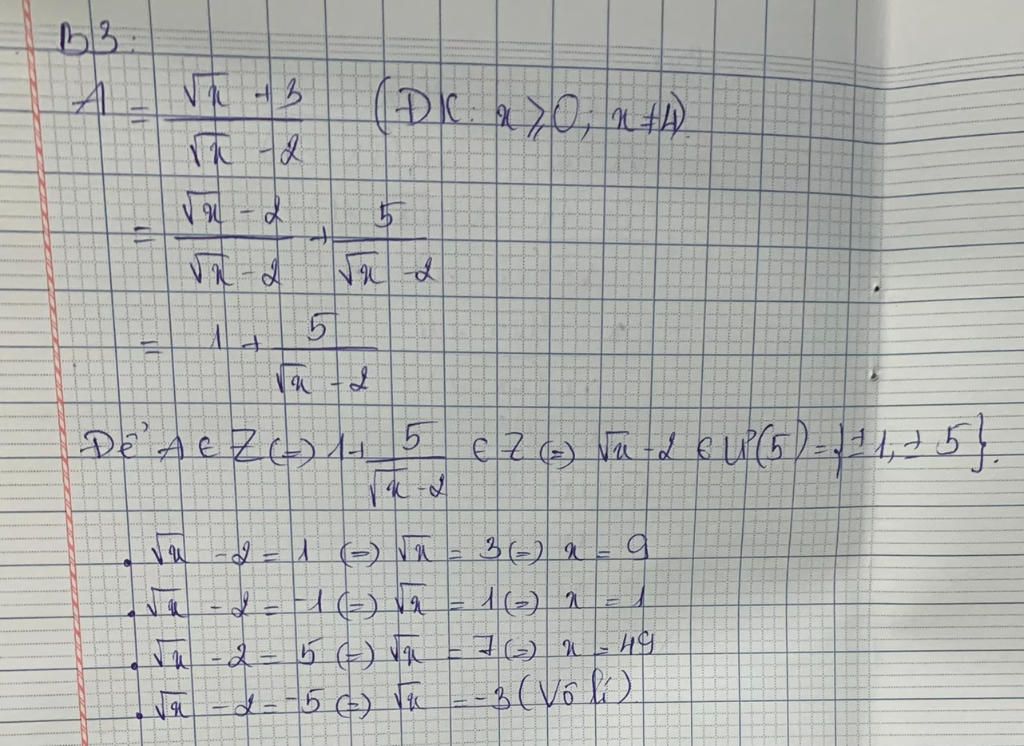 B3:
A = (√x + 3)/(√x - 2) (ĐK: x ≥ 0; x ≠ 4)
= (√x - 2)/(√x - 2) + 5/(√x - 2)
= 1 + 5/(√x - 2)
Để A ∈ Z (=) 1 + 5/(√x - 2) ∈ Z (=) √x - 2 ∈ Ư(5) = {±1, ±5}.
• √x - 2 = 1 (=) √x = 3 (=) x = 9
• √x - 2 = -1 (=) √x = 1 (=) x = 1
• √x - 2 = 5 (=) √x = 7 (=) x = 49
• √x - 2 = -5 (=) √x = -3 (Vô lí)